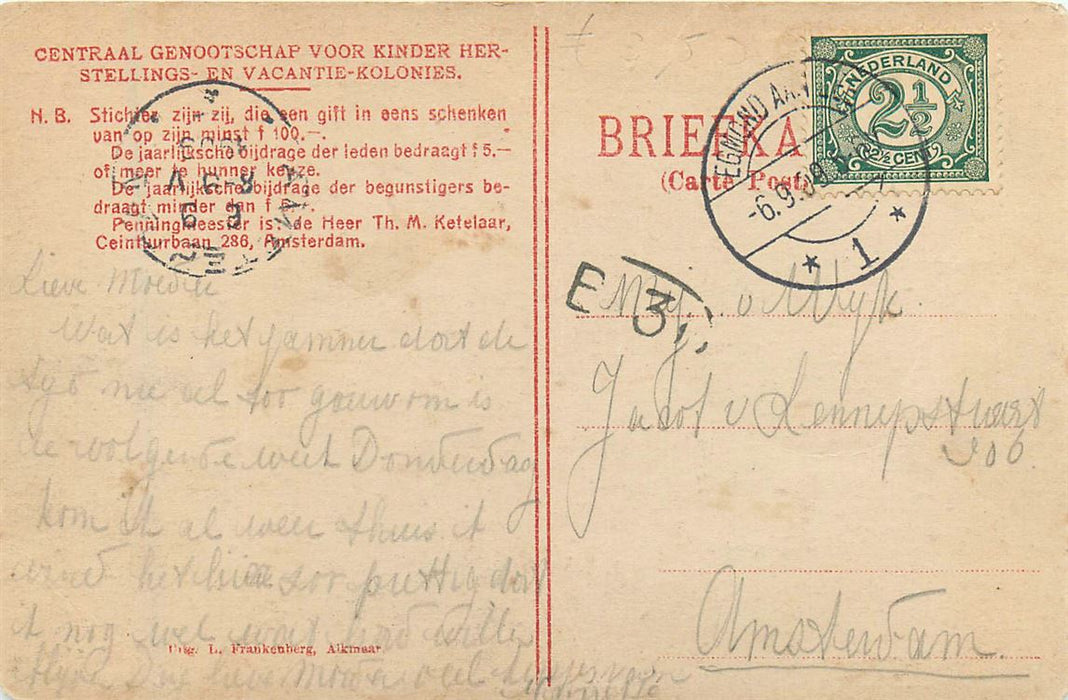 CENTRAAL GENOOTSCHAP VOOR KINDER HER-
STELLINGS- EN VACANTIE-KOLONIES.
N. B. Stichter zijn zij, die een gift in eens schenken
van op zijn minst f 100.—.
De jaarlijksche bijdrage der leden bedraagt f 5.—
of meer te hunner keuze.
De jaarlijksche bijdrage der begunstigers be-
draagt minder dan f
Penningmeester is: de Heer Th. M. Ketelaar,
Ceintuurbaan 286, Amsterdam.
Lieve Moeder
Wat is het jammer dat de
tyd nu al zoo gauw om is
de volgende week Donderdag
kom ik al weer thuis ik
vind het hier zoo prettig dat
ik nog wel wat had willen
Lieve Moeder veel
Uitg. L. Frankenberg, Alkmaar
BRIEFKA
(Carte Post
NEDERLAND
2½
2½ CENT
EGMOND AAN
-6.9.09
1
E 3
Mej. v Wyk
Jacob v Lennepstraat
306
Amsterdam.